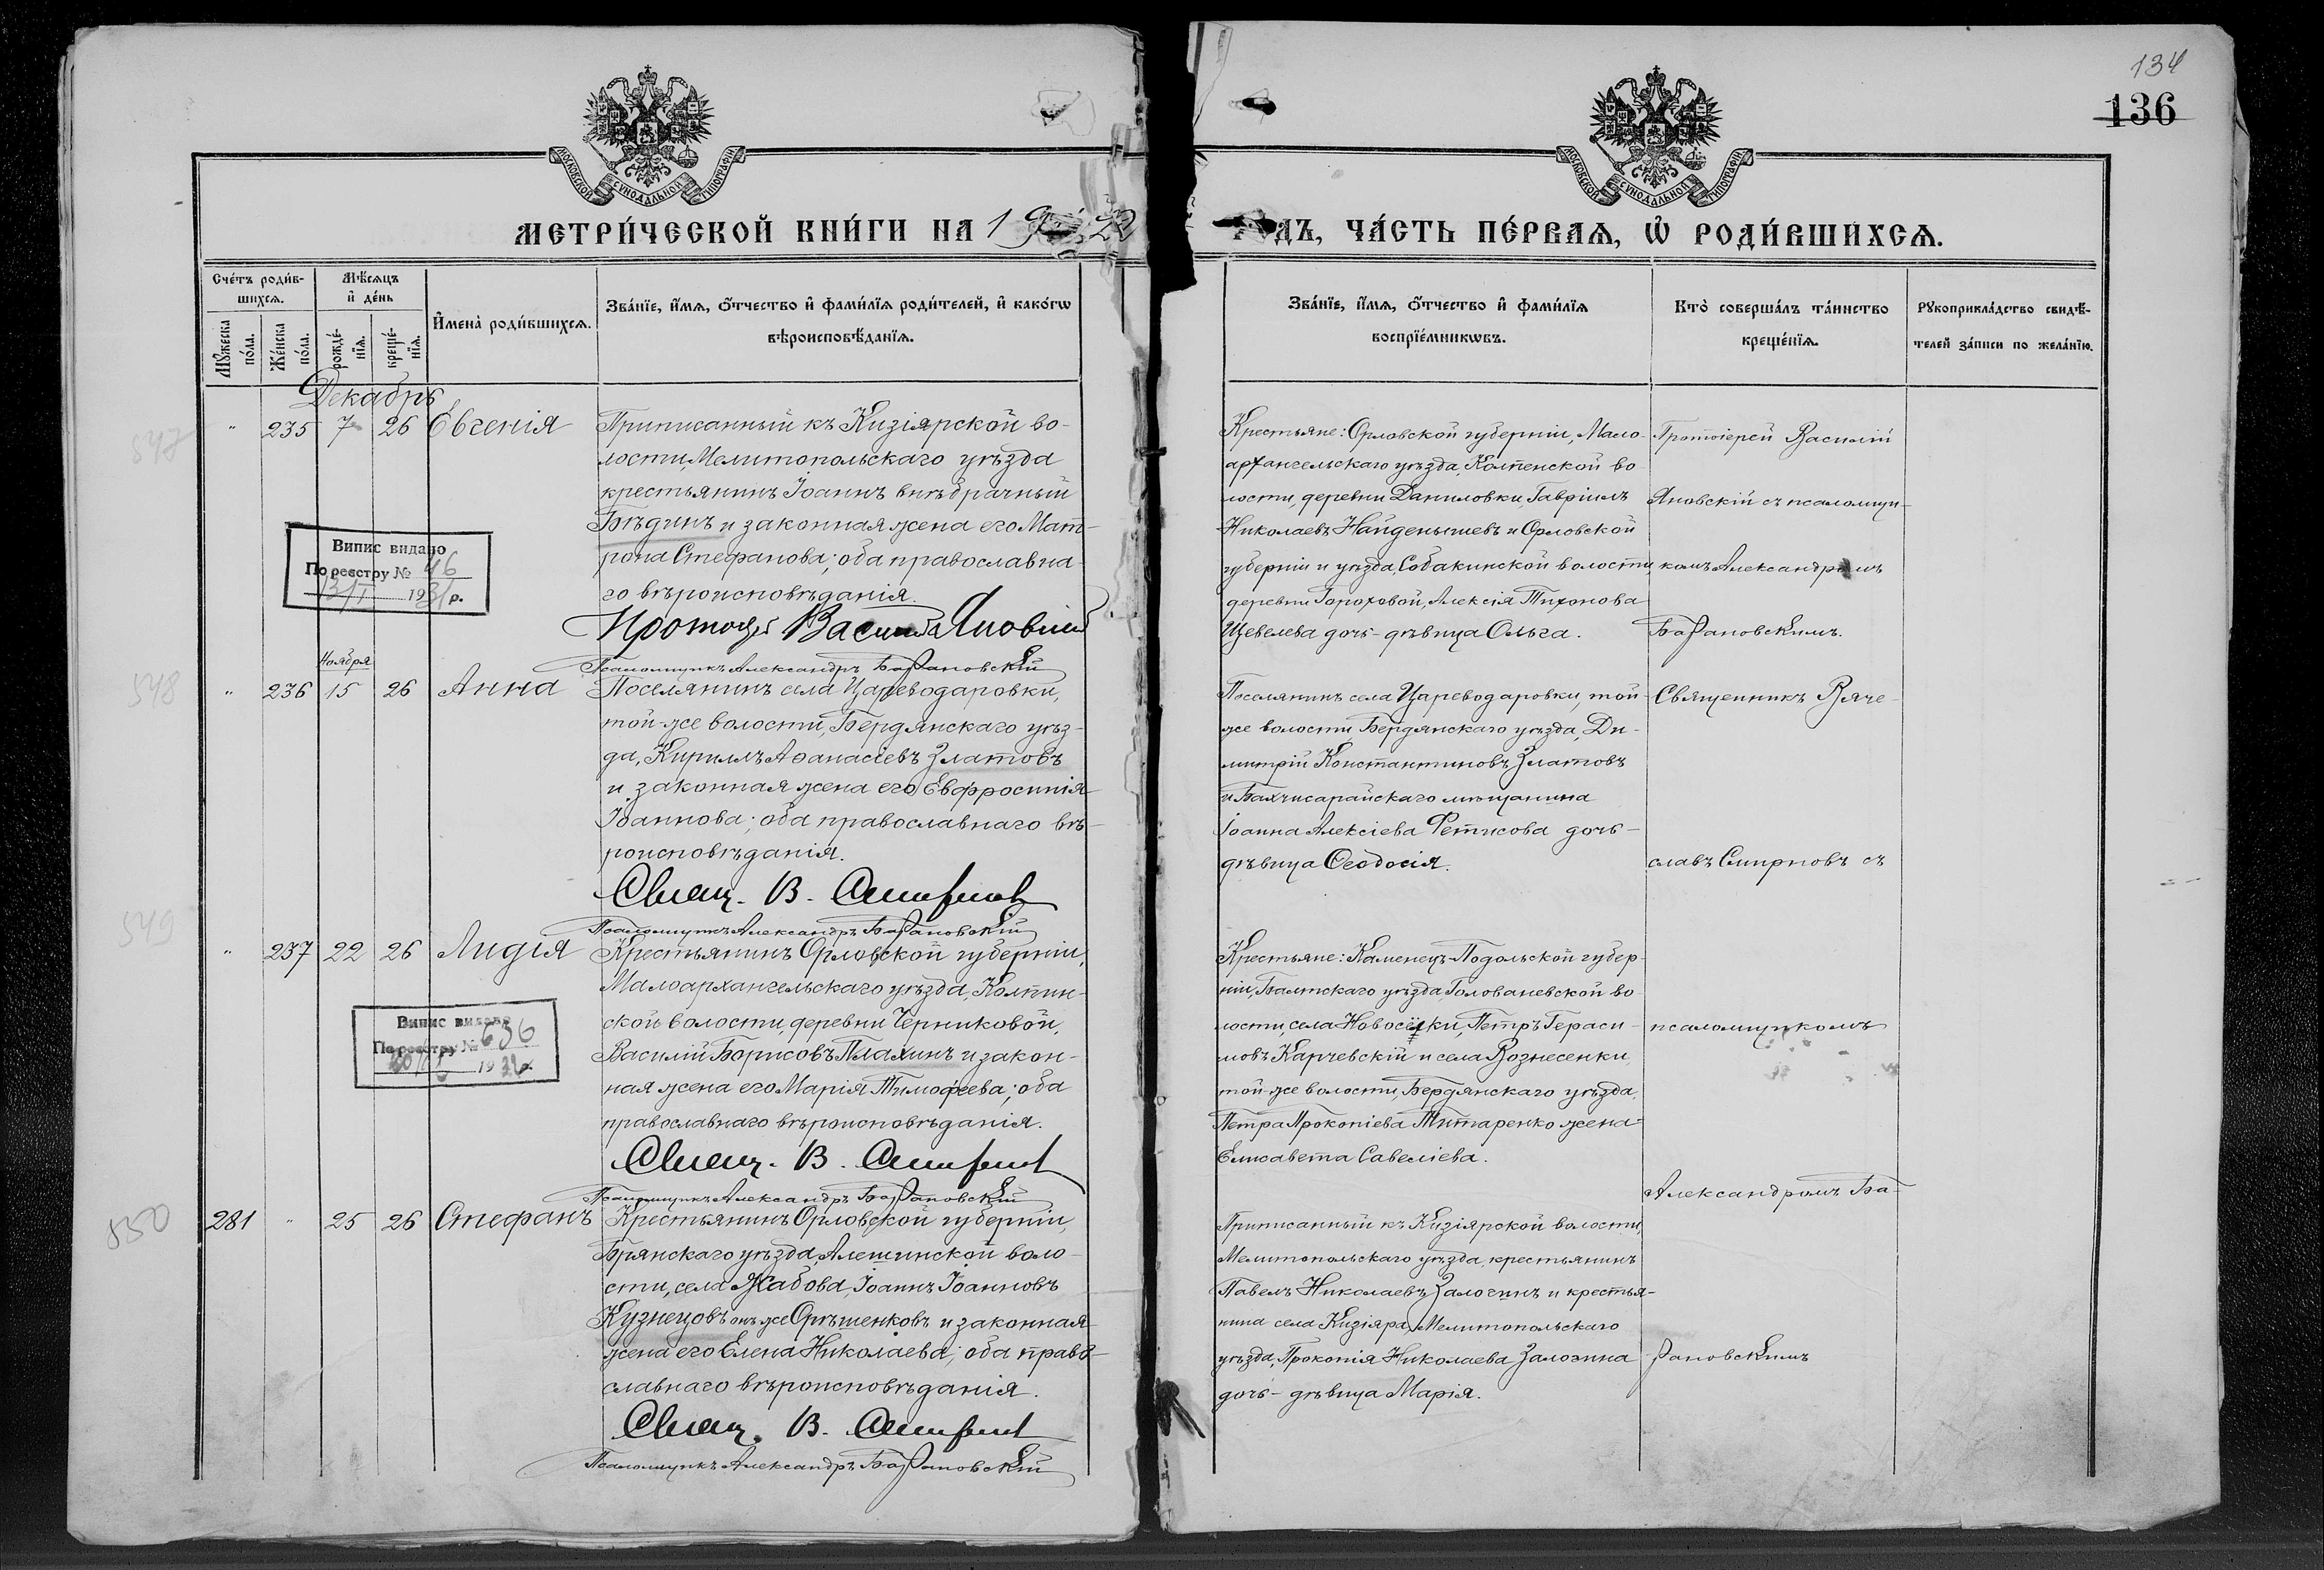 134
136
МОСКОВСКОЙ СУНОДАЛЬНОЙ ТИПОГРАФІИ
МОСКОВСКОЙ СУНОДАЛЬНОЙ ТИПОГРАФІИ
МЕТРИ́ЧЕСКОЙ КНИ́ГИ НА 19 22
ДЪ, ЧА́СТЬ ПЕ́РВАѦ, Ѡ҆ РОДИ́ВШИХСѦ.
Сче́тъ роди́в-
шихсѧ.
Мꙋ́жеска по́ла.
Же́нска по́ла.
Мѣ́сѧцъ
и҆ де́нь
рожде́-
нїѧ.
креще́-
нїѧ.
И҆мена̀ роди́вшихсѧ.
Зва́нїе, и҆́мѧ, ѻ҆́тчество и҆ фами́лїѧ роди́телей, и҆ како́гѡ
вѣроисповѣ́данїѧ.
Зва́нїе, и҆́мѧ, ѻ҆́тчество и҆ фами́лїѧ
воспрїе́мникѡвъ.
Кто̀ соверша́лъ та́инство
креще́нїѧ.
Рꙋкоприкла́дство свидѣ́-
телей за́писи по жела́нїю.
Декабрь
547
" 235 7 26 Евгенія
Приписанный къ Кизіярской во-
лости, Мелитопольскаго уѣзда
крестьянинъ Іоаннъ внѣбрачный
Бѣдинъ и законная жена его Мат-
рона Стефанова; оба православна-
го вѣроисповѣданія.
Випис видано
По реєстру № 46
13/I 1931 р.
Протоіер Василій Яновскій
Псаломщикъ Александръ Барановскій
Крестьяне: Орловской губерніи, Мало-
архангельскаго уѣзда, Колпенской во
лости, деревни Даниловки, Гавріилъ
Николаевъ Найденышевъ и Орловской
губерніи и уѣзда, Собакинской волости,
деревни Гороховой, Алексія Тихонова
Щевелева дочь - дѣвица Ольга.
Протоіерей Василій
Яновскій съ псаломщи-
комъ Александромъ
Барановскимъ.
Ноября
548
" 236 15 26 Анна
Поселянинъ села Цареводаровки,
той-же волости, Бердянскаго уѣз-
да, Кириллъ Аѳанасіевъ Златовъ
и законная жена его Евфросинія
Іоаннова; оба православнаго вѣ-
роисповѣданія.
Свящ. В. Смирновъ
Псаломщикъ Александръ Барановскій
Поселянинъ села Цареводаровки, той-
же волости, Бердянскаго уѣзда, Ди-
митрій Константиновъ Златовъ
и Бахчисарайскаго мѣщанина
Іоанна Алексіева Фетисова дочь -
дѣвица Ѳеодосія.
Священникъ Вяче-
славъ Смирновъ съ
549
" 237 22 26 Лидія
Крестьянинъ Орловской губерніи,
Малоархангельскаго уѣзда, Колпин-
ской волости, деревни Черниковой,
Василій Борисовъ Плахинъ и закон-
ная жена его Марія Тимофеева; оба
православнаго вѣроисповѣданія.
Випис видано
По реєстру № 636
19 р.
Свящ. В. Смирновъ
Псаломщикъ Александръ Барановскій
Крестьяне: Каменецъ-Подольской губер-
ніи, Балтскаго уѣзда, Голованевской во
лости, села Новосёлки, Петръ Гераси-
мовъ Карчевскій и села Вознесенки,
той-же волости, Бердянскаго уѣзда,
Петра Прокопіева Титаренко жена
Елисавета Савеліева.
псаломщикомъ
Александромъ Ба-
550
281 " 25 26 Стефанъ
Крестьянинъ Орловской губерніи,
Брянскаго уѣзда, Алешинской воло-
сти, села Жабова, Іоаннъ Іоанновъ
Кузнецовъ онъ же Орѣшенковъ и законная
жена его Елена Николаева; оба право-
славнаго вѣроисповѣданія.
Свящ. В. Смирновъ
Псаломщикъ Александръ Барановскій
Приписанный къ Кизіярской волости,
Мелитопольскаго уѣзда, крестьянинъ
Павелъ Николаевъ Залогинъ и крестья-
нина села Кизіяра, Мелитопольскаго
уѣзда, Прокопія Николаева Залогина
дочь - дѣвица Марія.
рановскимъ